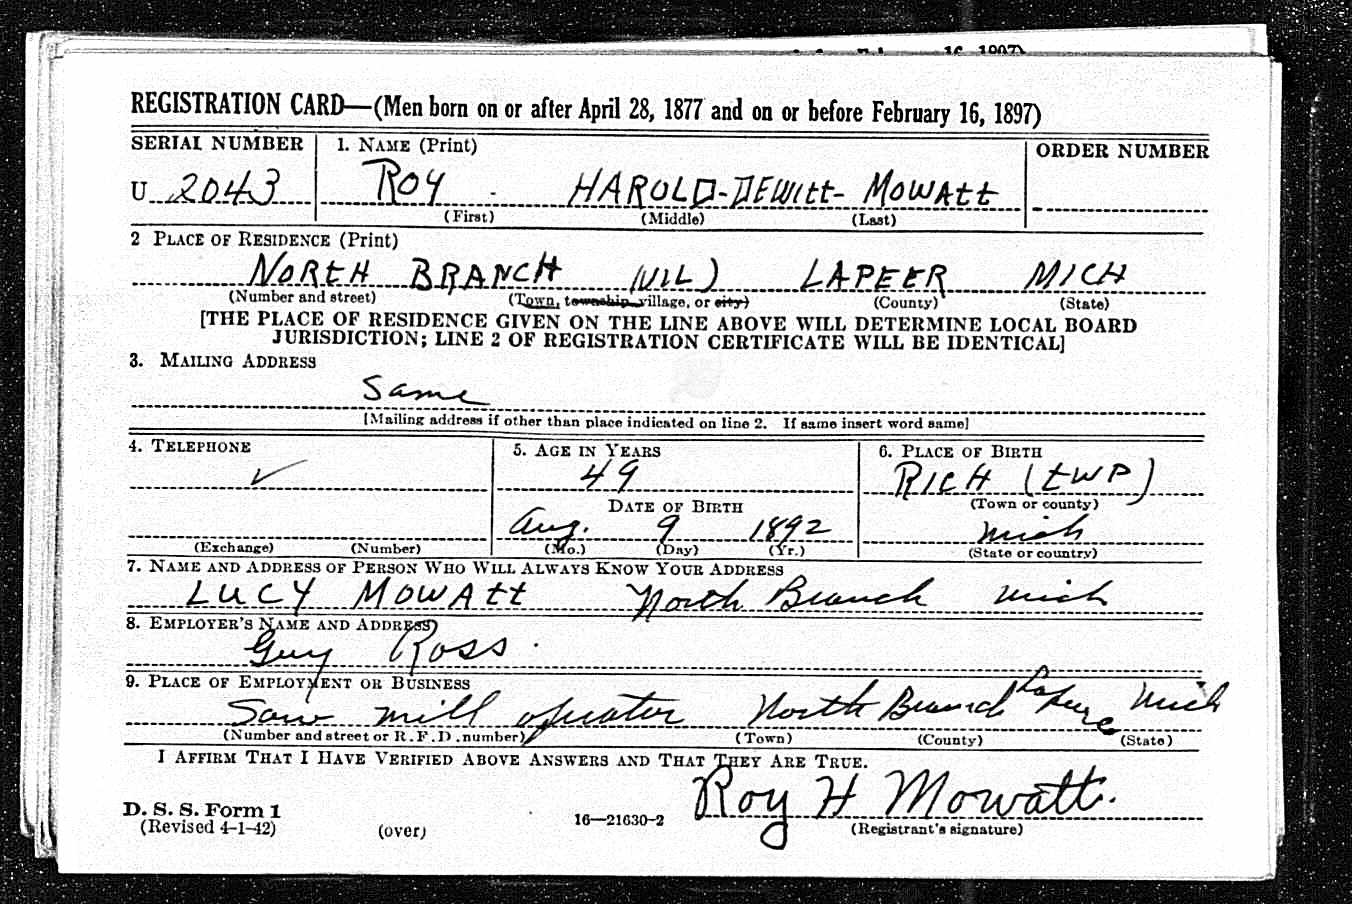 16, 1897)
REGISTRATION CARD—(Men born on or after April 28, 1877 and on or before February 16, 1897)
SERIAL NUMBER 1. NAME (Print) ORDER NUMBER
U 2043 ROY HAROLD-DEWITT- MOWATT
(First) (Middle) (Last)
2 PLACE OF RESIDENCE (Print)
NORTH BRANCH (VIL) LAPEER MICH
(Number and street) (Town, township, village, or city) (County) (State)
[THE PLACE OF RESIDENCE GIVEN ON THE LINE ABOVE WILL DETERMINE LOCAL BOARD
JURISDICTION; LINE 2 OF REGISTRATION CERTIFICATE WILL BE IDENTICAL]
3. MAILING ADDRESS
Same
[Mailing address if other than place indicated on line 2. If same insert word same]
4. TELEPHONE 5. AGE IN YEARS 6. PLACE OF BIRTH
49 RICH (TWP)
DATE OF BIRTH (Town or county)
Aug. 9 1892 Mich
(Exchange) (Number) (Mo.) (Day) (Yr.) (State or country)
7. NAME AND ADDRESS OF PERSON WHO WILL ALWAYS KNOW YOUR ADDRESS
LUCY MOWATT North Branch Mich
8. EMPLOYER'S NAME AND ADDRESS
Guy Ross.
9. PLACE OF EMPLOYMENT OR BUSINESS
Saw mill operator North Branch Mich
(Number and street or R. F. D. number) (Town) (County) (State)
I AFFIRM THAT I HAVE VERIFIED ABOVE ANSWERS AND THAT THEY ARE TRUE.
Roy H Mowatt.
D. S. S. Form 1
(Revised 4-1-42) (over) 16—21630-2 (Registrant's signature)